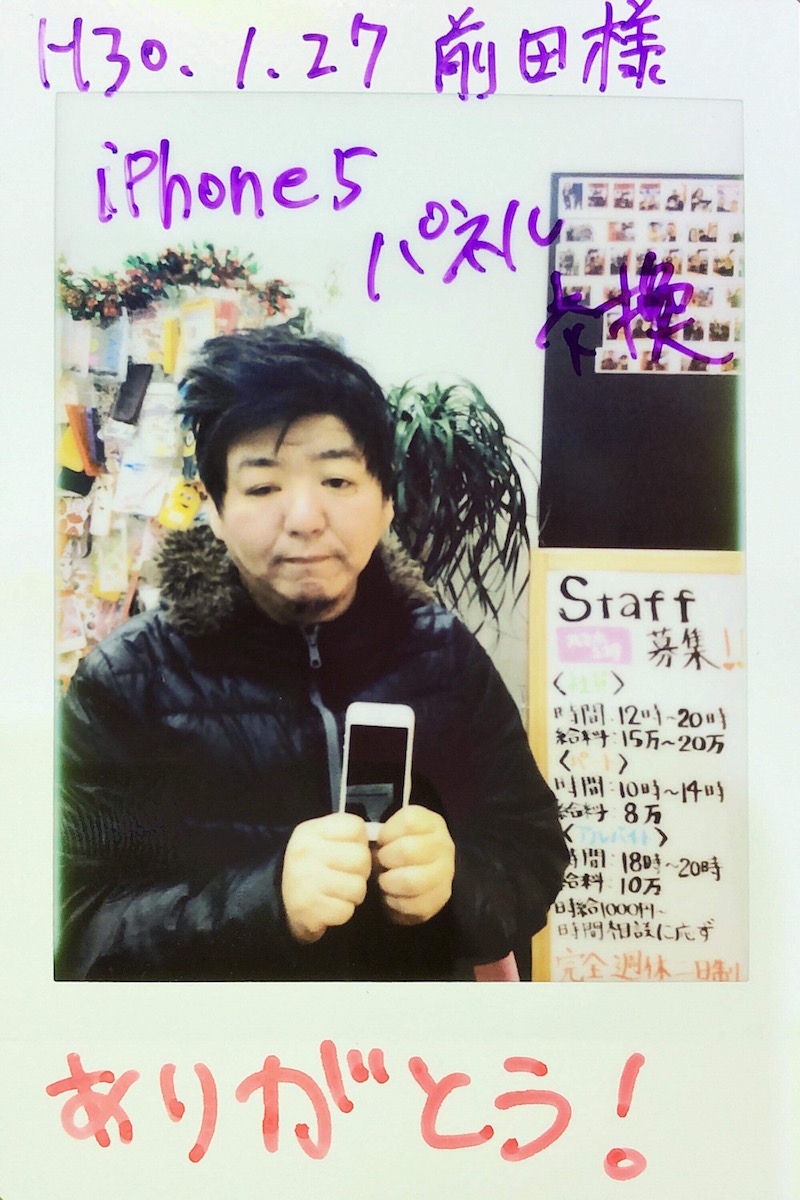 H30.1.27 前田様
iPhone5
パネル
交換
Staff
募集!!
〈社員〉
時間:12時~20時
給料:15万~20万
〈パート〉
時間:10時~14時
給料 8万
〈アルバイト〉
時間:18時~20時
給料:10万
時給1000円~
時間相談に応ず
完全週休二日制
ありがとう!